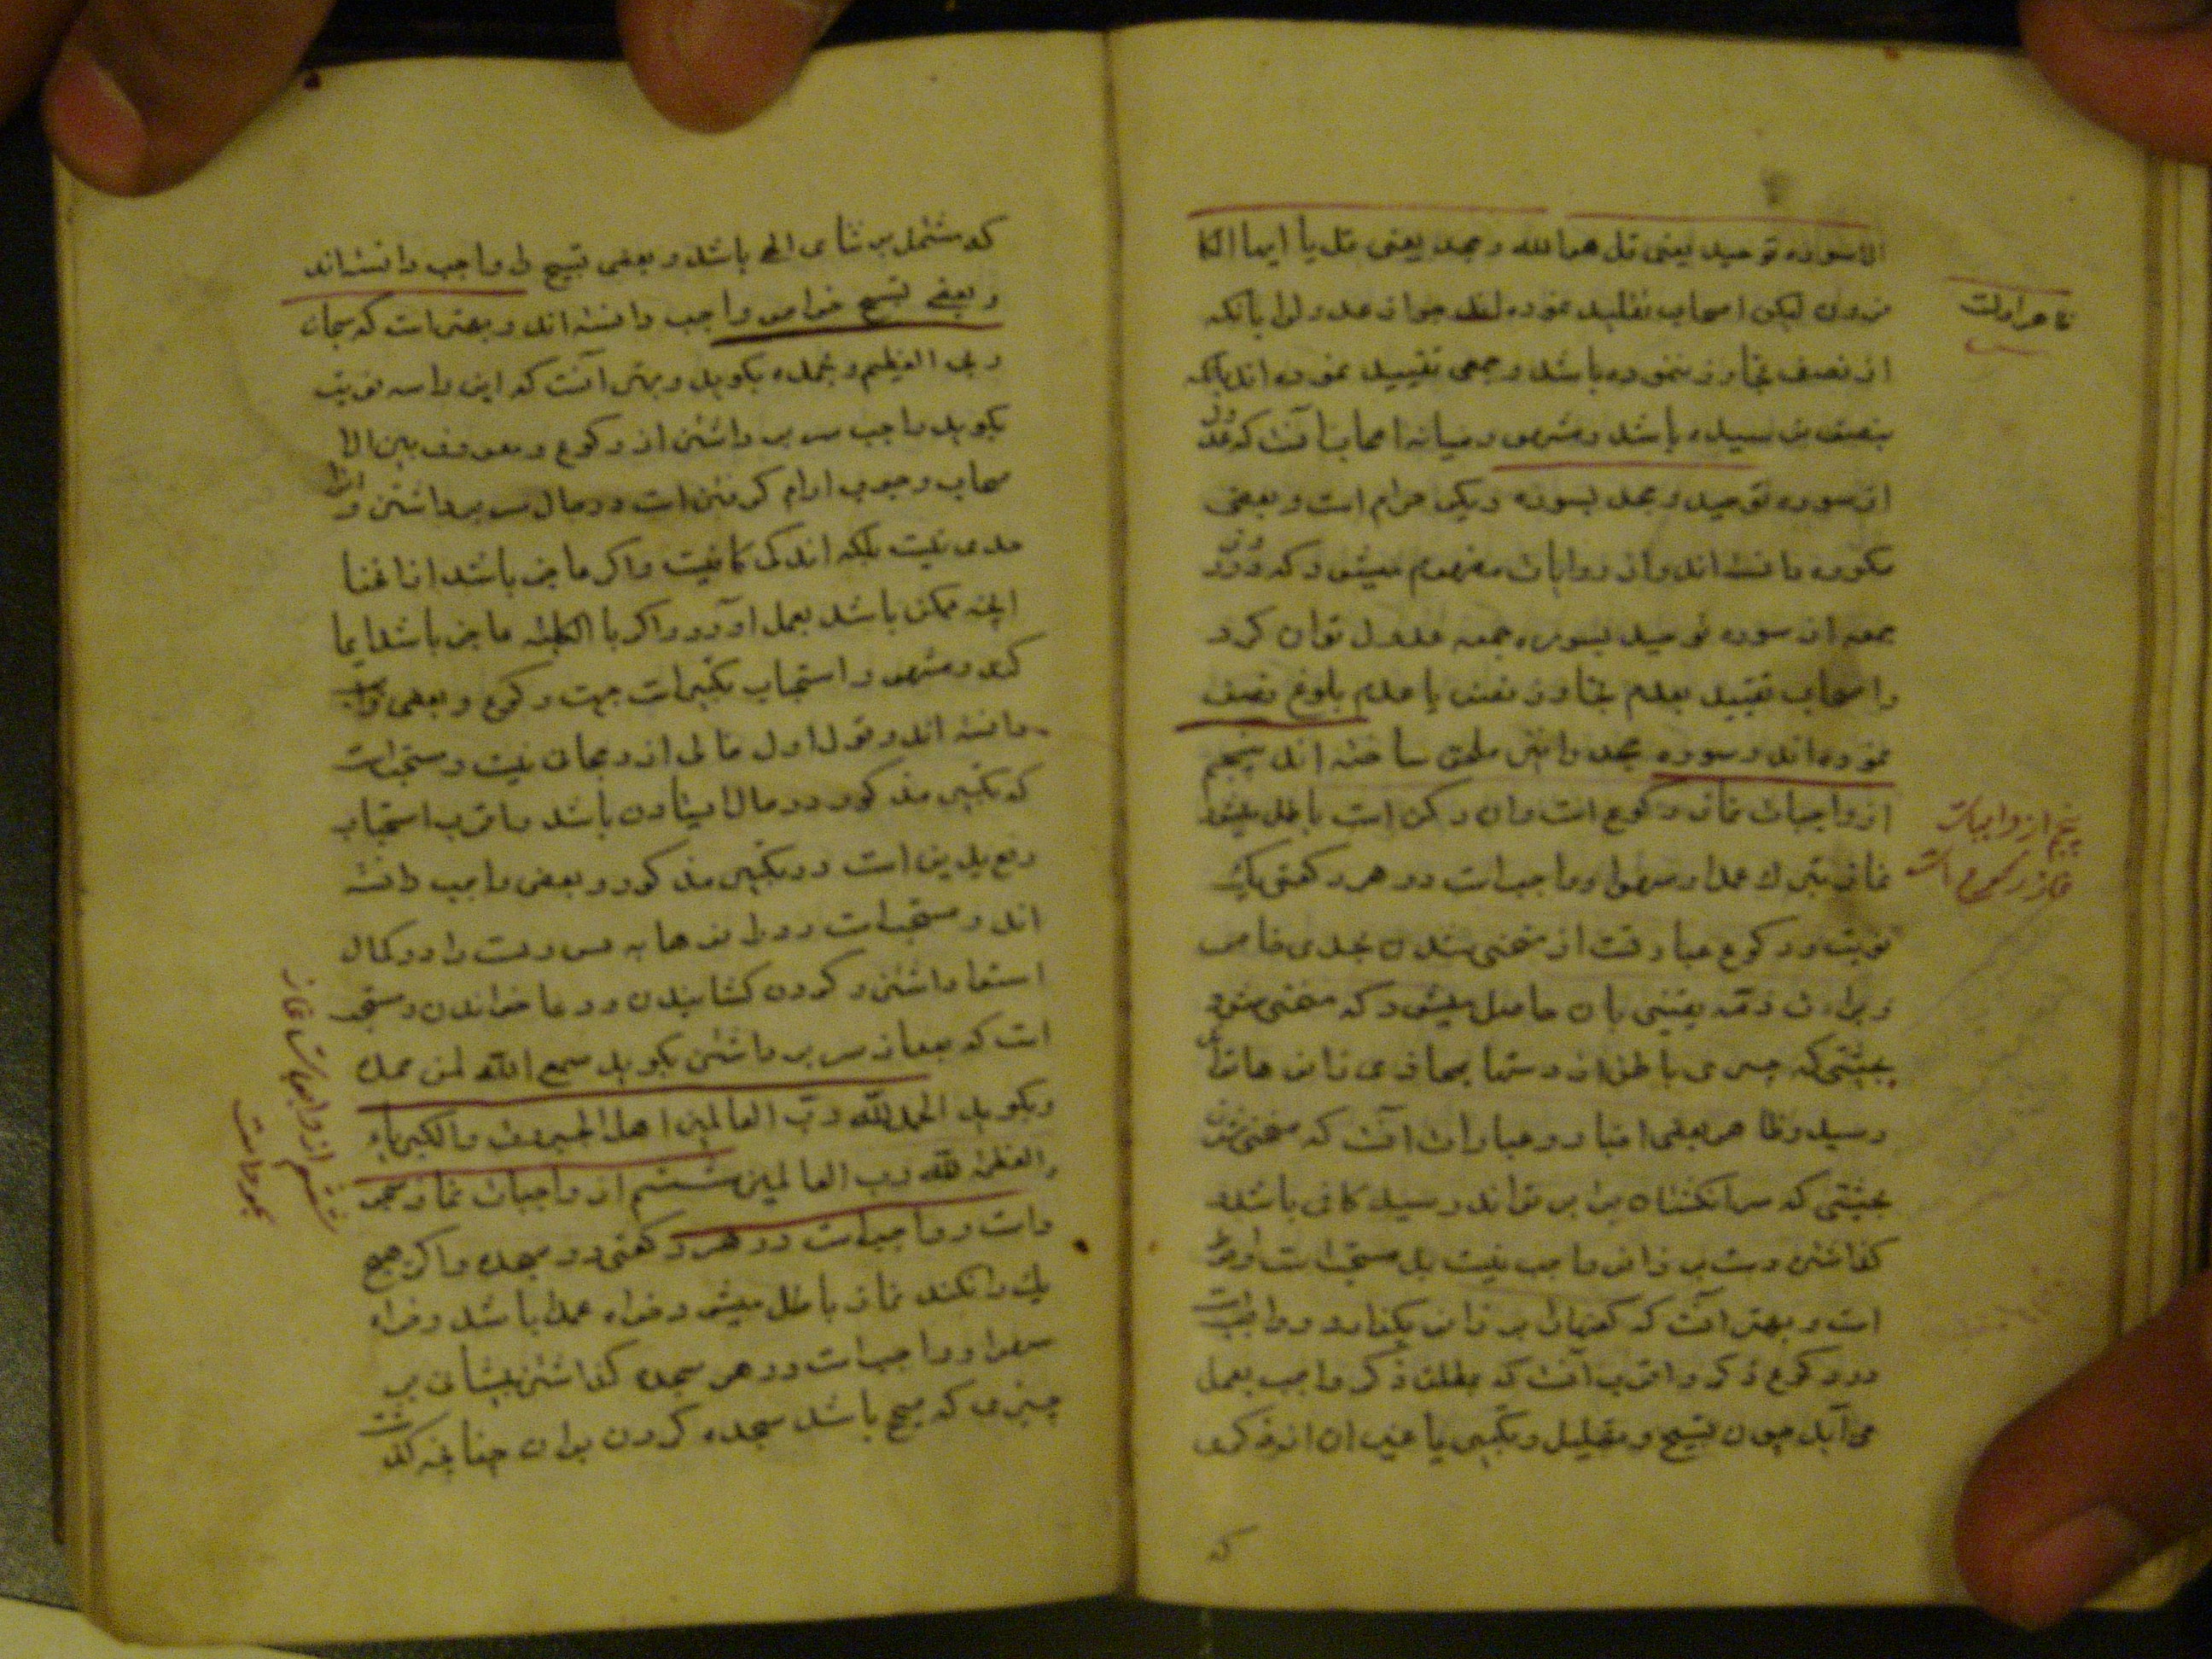 الا سوره توحید یعنی قل هو الله و جحد یعنی قل یا ایها الکا
فرون لیکن اصحاب تقلید نموده اند جواز عدول را بانکه
از نصف تجاوز ننموده باشد و جمعی تقیید نموده اند بانکه
بنصف نرسیده باشد و مشهور میانه اصحاب آنست که عدول
از سوره توحید و جحد بسوره دیگر حرام است و بعضی
مکروه دانسته اند و از روایات مفهوم میشود که در روز
جمعه از سوره توحید بسوره جمعه عدول توان کرد
و اصحاب تقیید بعدم تجاوز نصف یا عدم بلوغ نصف
نموده اند و سوره جحد را نیز ملحق ساخته اند پنجم
از واجبات نماز رکوع است و ان رکن است باطل میشود
نماز بترک عمدا و سهوا و واجب است در هر رکعتی یک
نوبت و رکوع عبارتست از منحنی شدن بحدی خاص
و براءت ذمه یقینی بان حاصل میشود که منحنی شود
بحیثتی که چیزی باطن از دستها بمحاذی زانوها تواند
رسید و ظاهر بعضی اخبار و عبارات آنست که منحنی شدن
بحیثتی که سر انگشتان بزانو تواند رسید کافی باشد و
گذاشتن دست بر زانو واجب نیست بل مستحب است و احوط
است و بهتر آنست که کفها را بر زانو بگذارد و واجب است
در رکوع ذکر و اقرب آنست که مطلق ذکر واجب بعمل
می آید چون تسبیح و تهلیل و تکبیر یا غیر ان از ذکری
که
ظاهر اولست
پنجم از واجبات
نماز رکوع است
که مشتمل بر ثنای الهی باشد و بعضی تسبیح را واجب دانسته اند
و بعضی تسبیح خواص واجب دانسته اند و بهتر است که سبحان
ربی العظیم و بحمده بگوید و بهتر آنست که این را سه نوبت
بگوید واجب سر برداشتن از رکوع و معروف بین الا
صحاب وجوب ارام گرفتن است در حال سر برداشتن و انرا
حدی نیست بلکه اندکی کافیست و اگر عاجز باشد از انحنا
آنچه ممکن باشد بعمل آورد و اگر بالکلیه عاجز باشد ایما
کند و مشهور استحباب تکبیر است جهت رکوع و بعضی واجب
دانسته اند و قول اول خالی از رجحان نیست و مستحب است
که تکبیر مذکور در حال ایستادن باشد و اقرب استحباب
رفع یدین است در تکبیر مذکور و بعضی واجب دانسته
اند و مستحب است رد زانوها به پس و پشت را در کمال
استوا داشتن و گردن کشانیدن و دعا خواندن و مستحب
است که بعد از سر برداشتن بگوید سمع الله لمن حمده
و بگوید الحمد لله رب العالمین اهل الجبروت و الکبریاء
و العظمة لله رب العالمین ششم از واجبات نماز سجود
است و واجب است در هر رکعتی دو سجده و اگر هیچ
یک را نکند نماز باطل میشود خواه عمدا باشد و خواه
سهوا و واجب است در هر سجده گذاشتن پیشانی بر
چیزی که صحیح باشد سجده کردن بران چنانچه گذشت
ششم از واجبات نماز
سجود است